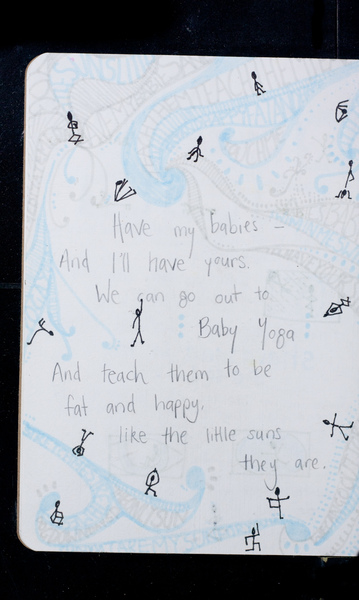 Have my babies –
And I'll have yours.
We can go out to
Baby Yoga
And teach them to be
fat and happy,
like the little suns
they are.